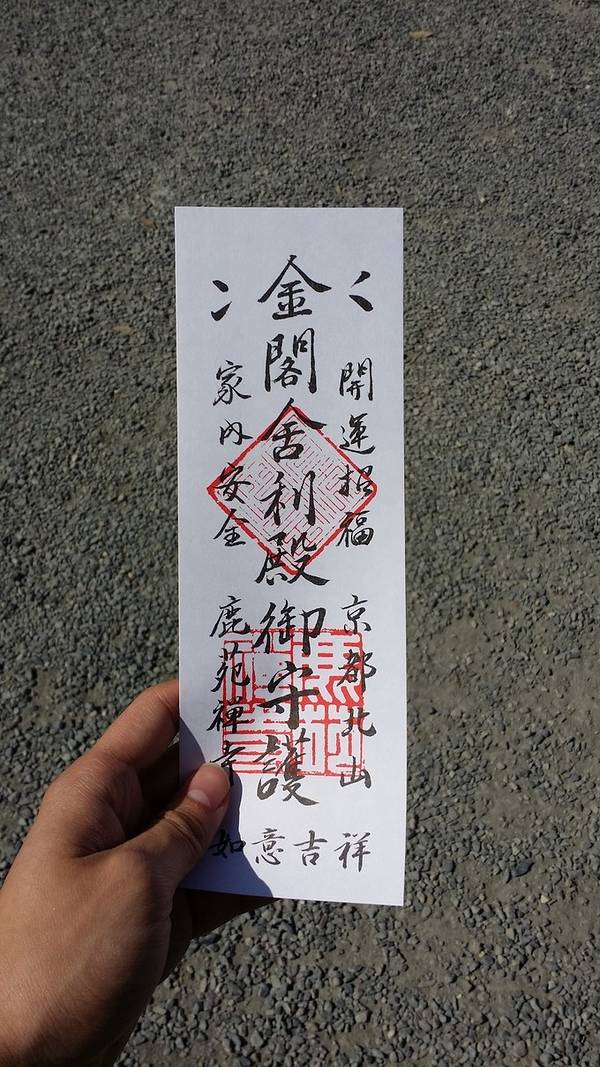 開運招福 京都北山
金閣舎利殿御守護
家内安全 鹿苑禅寺
如意吉祥